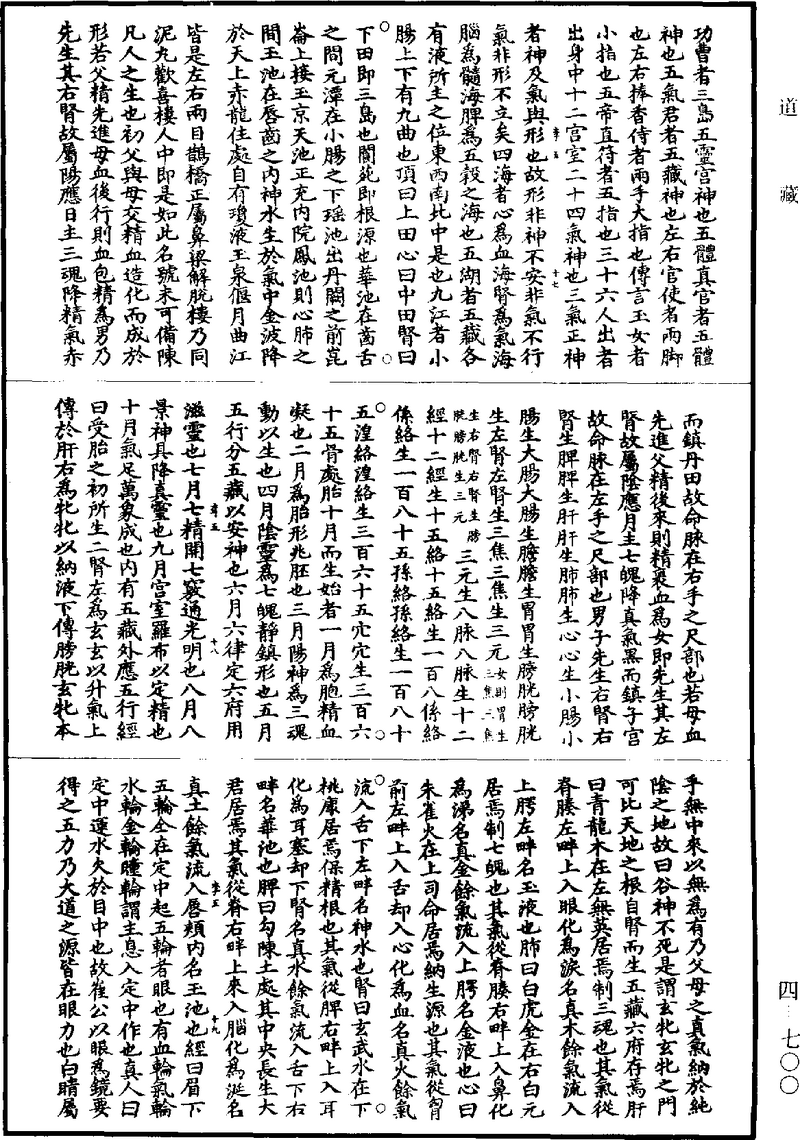 道藏
功曹者三島五靈宮神也五體真官者五體
神也五氣君者五藏神也左右官使者兩脚
也左右捧香侍者兩手大指也傳言玉女者
小指也五帝直符者五指也三十六人出者
出身中十二宮室二十四氣神也三氣正神
者神及氣與形也故形非神不安非氣不行
氣非形不立矣四海者心為血海腎為氣海
腦為髓海脾為五穀之海也五湖者五藏各
有液所主之位東西南北中是也九江者小
腸上下有九曲也頂曰上田心曰中田腎曰
下田即三島也閬苑即根源也華池在齒舌
之間元潭在小腸之下瑶池出丹闕之前崑
崙上接玉京天池正充内院鳳池則心肺之
間玉池在唇齒之内神水生於氣中金波降
於天上赤龍住處自有瓊液玉泉偃月曲江
皆是左右兩目鵲橋正屬鼻梁解脫樓乃同
泥丸歡喜樓人中即是如此名號未可備陳
凡人之生也初父與母交精血造化而成於
形若父精先進母血後行則血包精為男乃
先生其右腎故屬陽應日主三魂降精氣赤
而鎮丹田故命脉在右手之尺部也若母血
先進父精後來則精裹血為女即先生其左
腎故屬陰應月主七魄降真氣黑而鎮子宮
故命脉在左手之尺部也男子先生右腎右
腎生脾脾生肝肝生肺肺生心心生小腸小
腸生大腸大腸生膽膽生胃胃生膀胱膀胱
生左腎左腎生三焦三焦生三元女則胃生三焦三焦
生右腎右腎生膀胱膀胱生三元三元生八脉八脉生十二
經十二經生十五絡十五絡生一百八係絡
係絡生一百八十五孫絡孫絡生一百八十
五湟絡湟絡生三百六十五穴穴生三百六
十五骨處胎十月而生始者一月為胞精血
凝也二月為胎形兆胚也三月陽神為三魂
動以生也四月陰靈為七魄靜鎮形也五月
五行分五藏以安神也六月六律定六府用
滋靈也七月七精開七竅通光明也八月八
景神具降真靈也九月宮室羅布以定精也
十月氣足萬象成也内有五藏外應五行經
曰受胎之初所生二腎左為玄玄以升氣上
傳於肝右為牝牝以納液下傳膀胱玄牝本
乎無中來以無為有乃父母之真氣納於純
陰之地故曰谷神不死是謂玄牝玄牝之門
可比天地之根自腎而生五藏六府存焉肝
曰青龍木在左無英居焉制三魂也其氣從
脊膝左畔上入眼化為淚名真木餘氣流入
上腭左畔名玉液也肺曰白虎金在右白元
居焉制七魄也其氣從脊膝右畔上入鼻化
為涕名真金餘氣流入上腭名金液也心曰
朱雀火在上司命居焉納生源也其氣從胷
前左畔上入舌却入心化為血名真火餘氣
流入舌下左畔名神水也腎曰玄武水在下
桃康居焉保精根也其氣從脾右畔上入耳
化為耳塞却下腎名真水餘氣流入舌下右
畔名華池也脾曰勾陳土處其中央長生大
君居焉其氣從脊右畔上來入腦化為涎名
真土餘氣流入唇頰内名玉池也經曰眉下
五輪全在定中起五輪者眼也有血輪氣輪
水輪金輪瞳輪謂主息入定中作也真人曰
定中運水火於目中也故崔公以眼為鏡要
得之五力乃大道之源皆在眼力也白睛屬
四—七〇〇